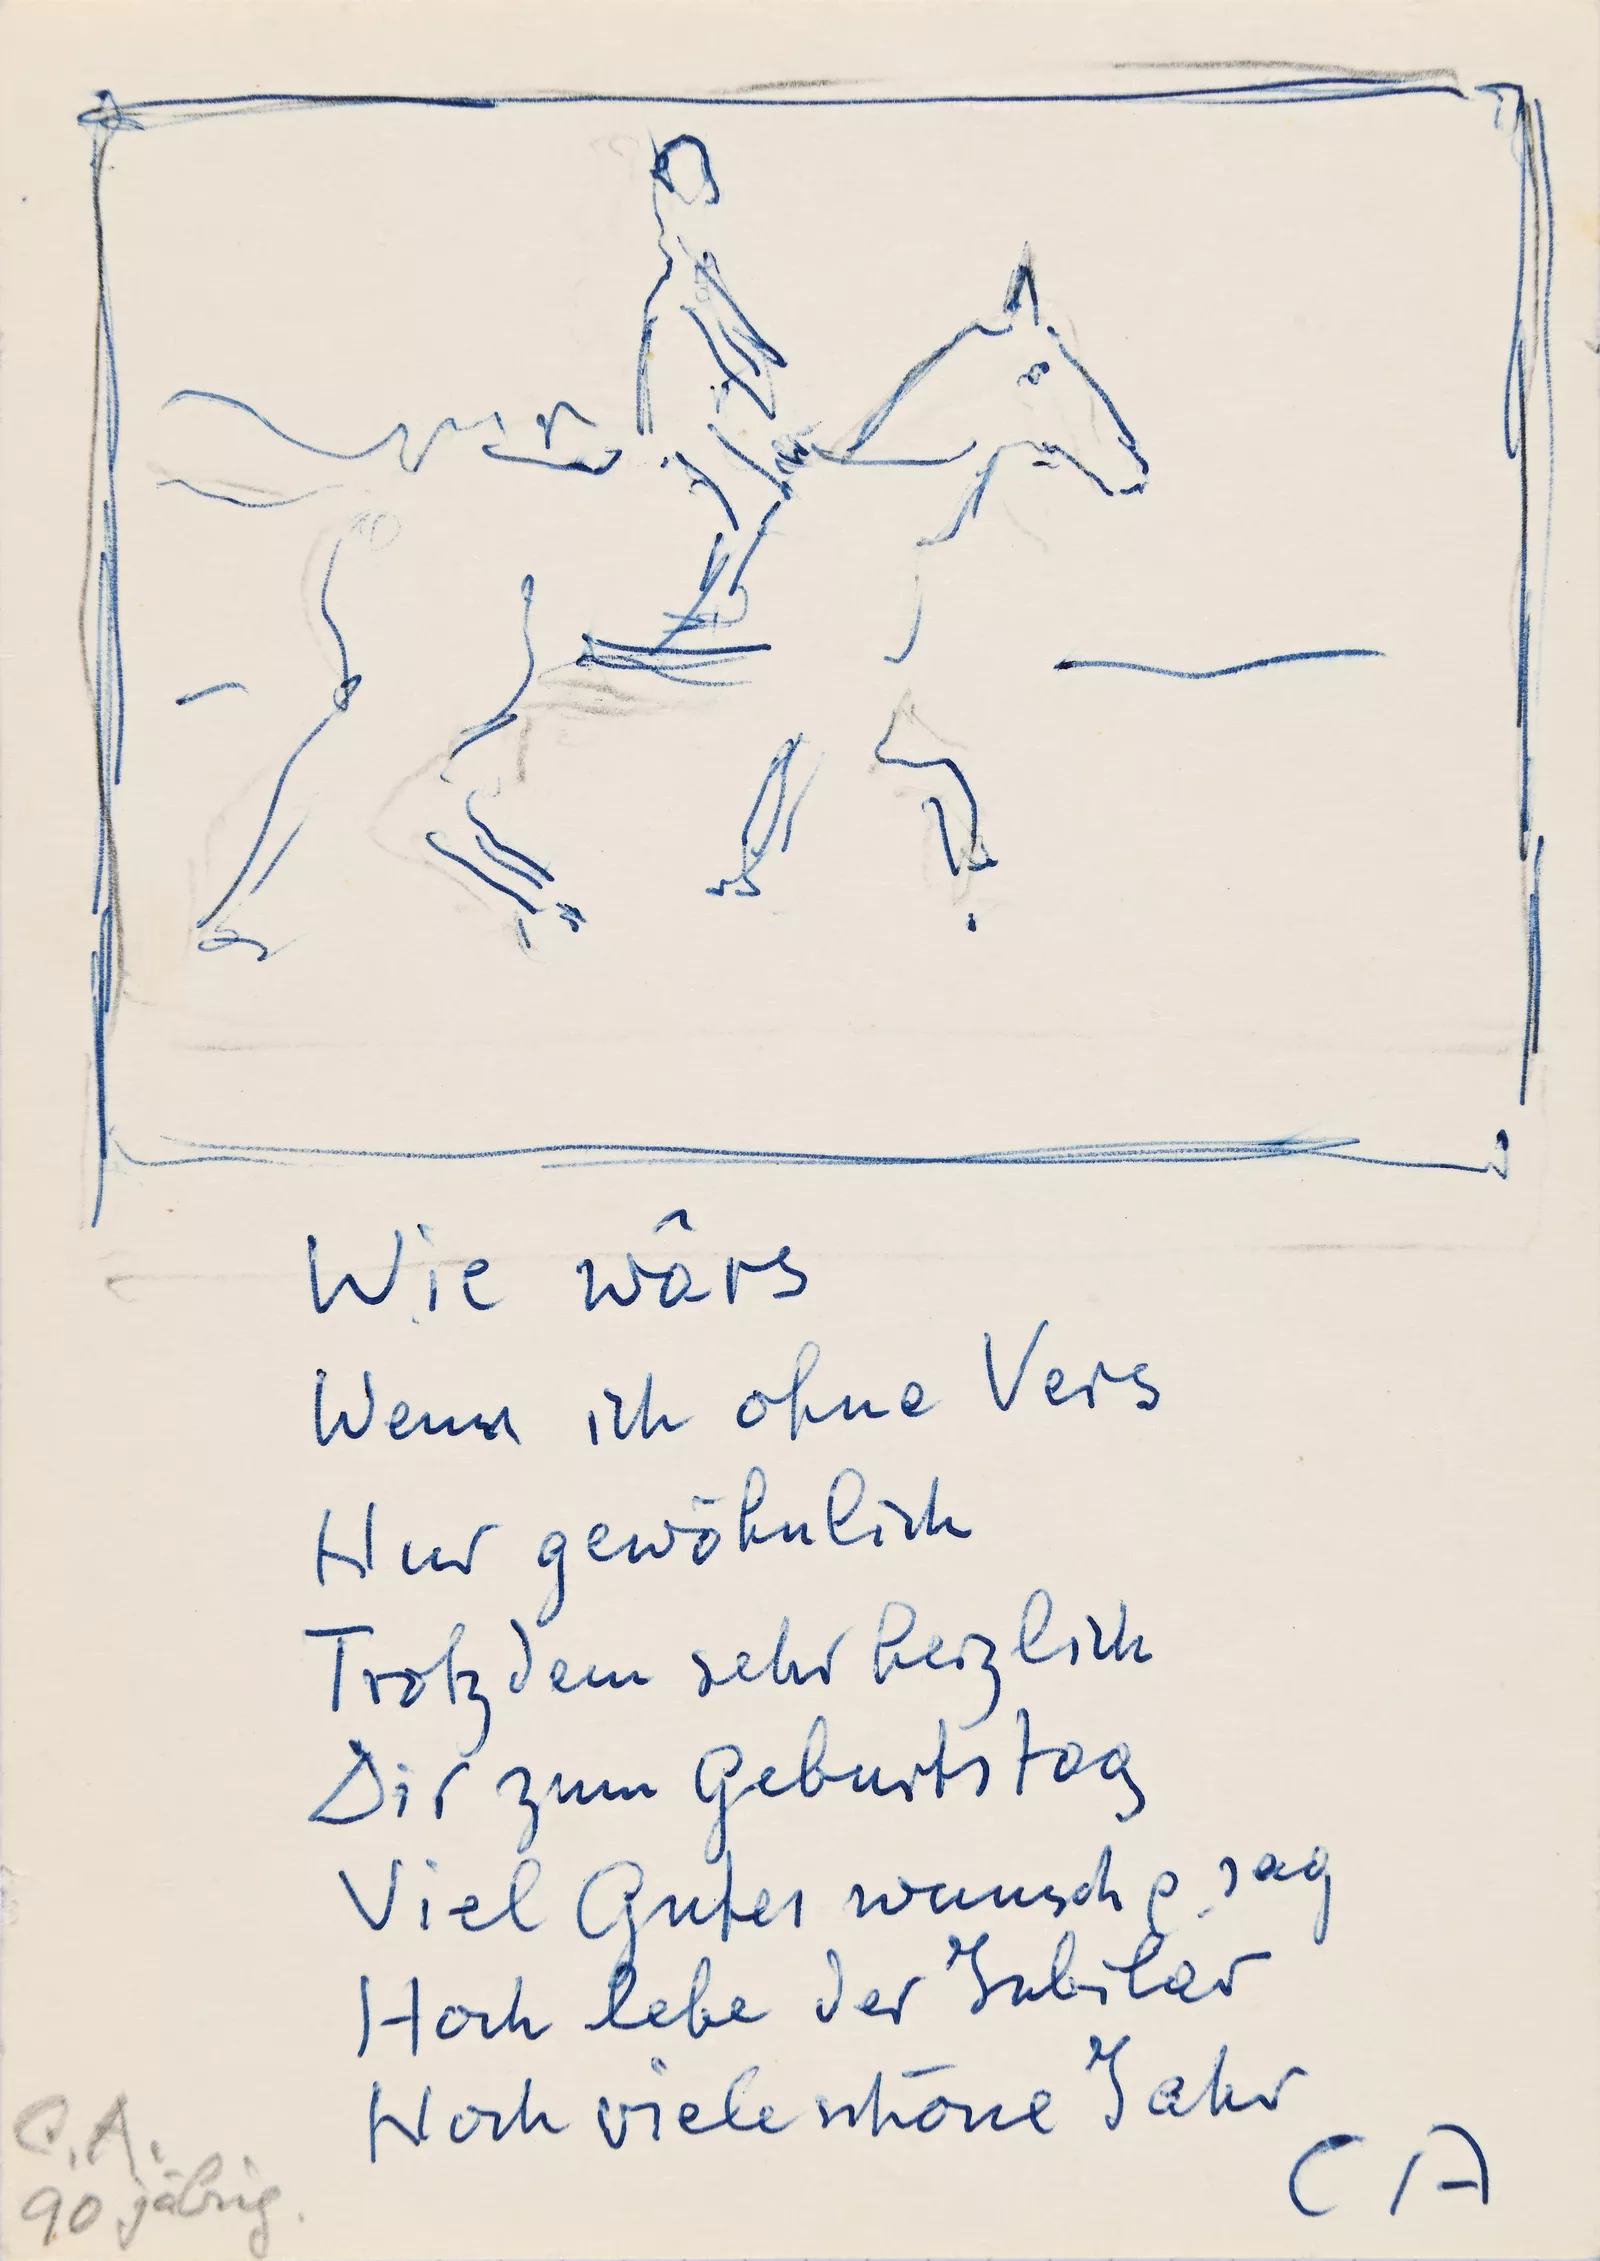 Wie wärs
Wenn ich ohne Vers
Nur gewöhnlich
Trotzdem sehr herzlich
Dir zum Geburtstag
Viel Gutes wunsch e. sag
Hoch lebe der Jubilar
Noch viele schöne Jahr
CA
C.A.
90 jährig.